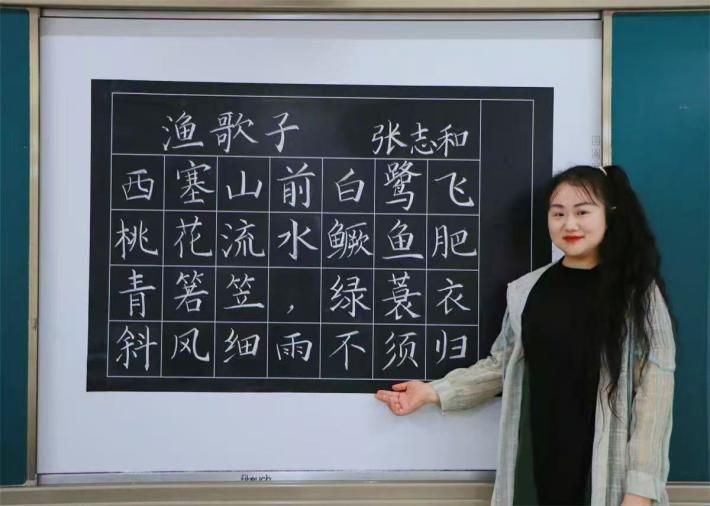 渔歌子 张志和
西塞山前白鹭飞
桃花流水鳜鱼肥
青箬笠，绿蓑衣
斜风细雨不须归